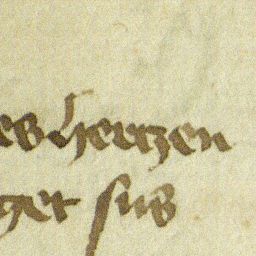 es hertzen
get sus